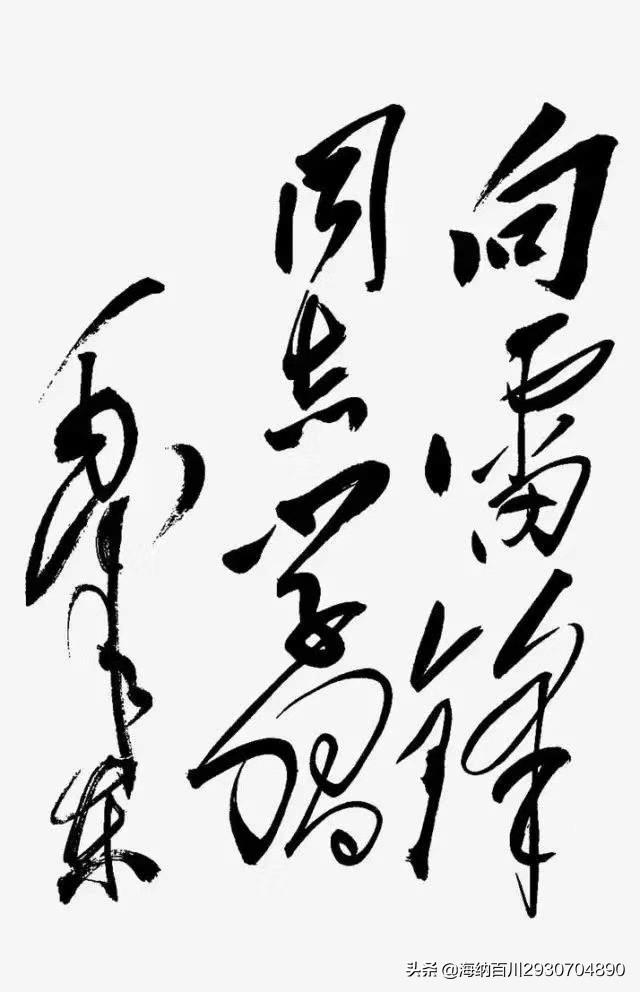 向雷锋
同志学习
毛泽东
头条 @海纳百川2930704890